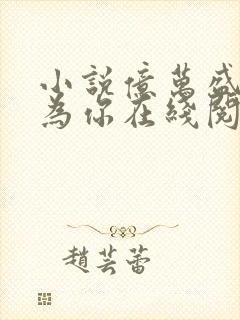 小說億萬盛
為你在綫閱
趙芸蕾